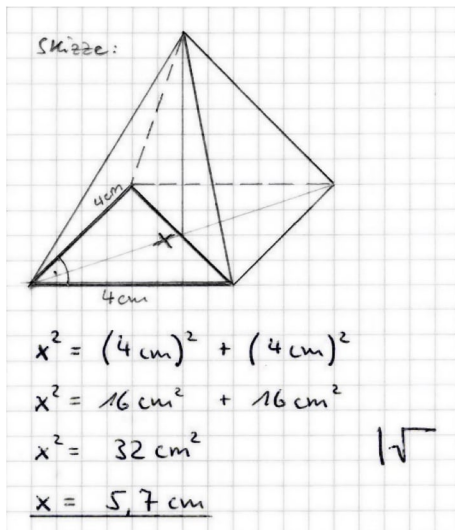 Skizze:
4cm
x
4cm
x² = (4 cm)² + (4 cm)²
x² = 16 cm² + 16 cm²
x² = 32 cm² |√
x = 5,7 cm